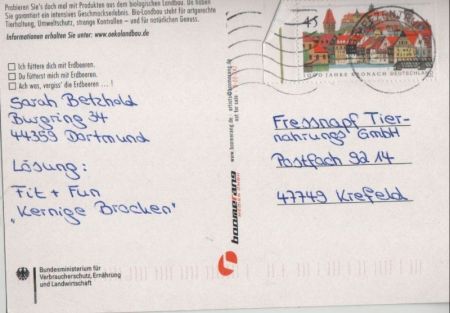 Probieren Sie's doch mal mit Produkten aus dem biologischen Landbau. Da haben
Sie garantiert ein intensives Geschmackserlebnis. Bio-Landbau steht für artgerechte
Tierhaltung, Umweltschutz, strenge Kontrollen – und für natürlichen Genuss.
Informationen erhalten Sie unter: www.oekolandbau.de
Ich füttere dich mit Erdbeeren.
Du fütterst mich mit Erdbeeren.
Ach was, vergiss' die Erdbeeren ... !
Sarah Betzhold
Burgring 34
44359 Dortmund
Lösung:
Fit + Fun
"Kernige Brocken"
Bundesministerium für
Verbraucherschutz, Ernährung
und Landwirtschaft
www.boomerang.de artists@boomerang.de
not for sale
boomerang
MEDIEN GMBH
45
1000 JAHRE KRONACH DEUTSCHLAND
Fressnapf Tier-
nahrungs GmbH
Postfach 9214
47749 Krefeld